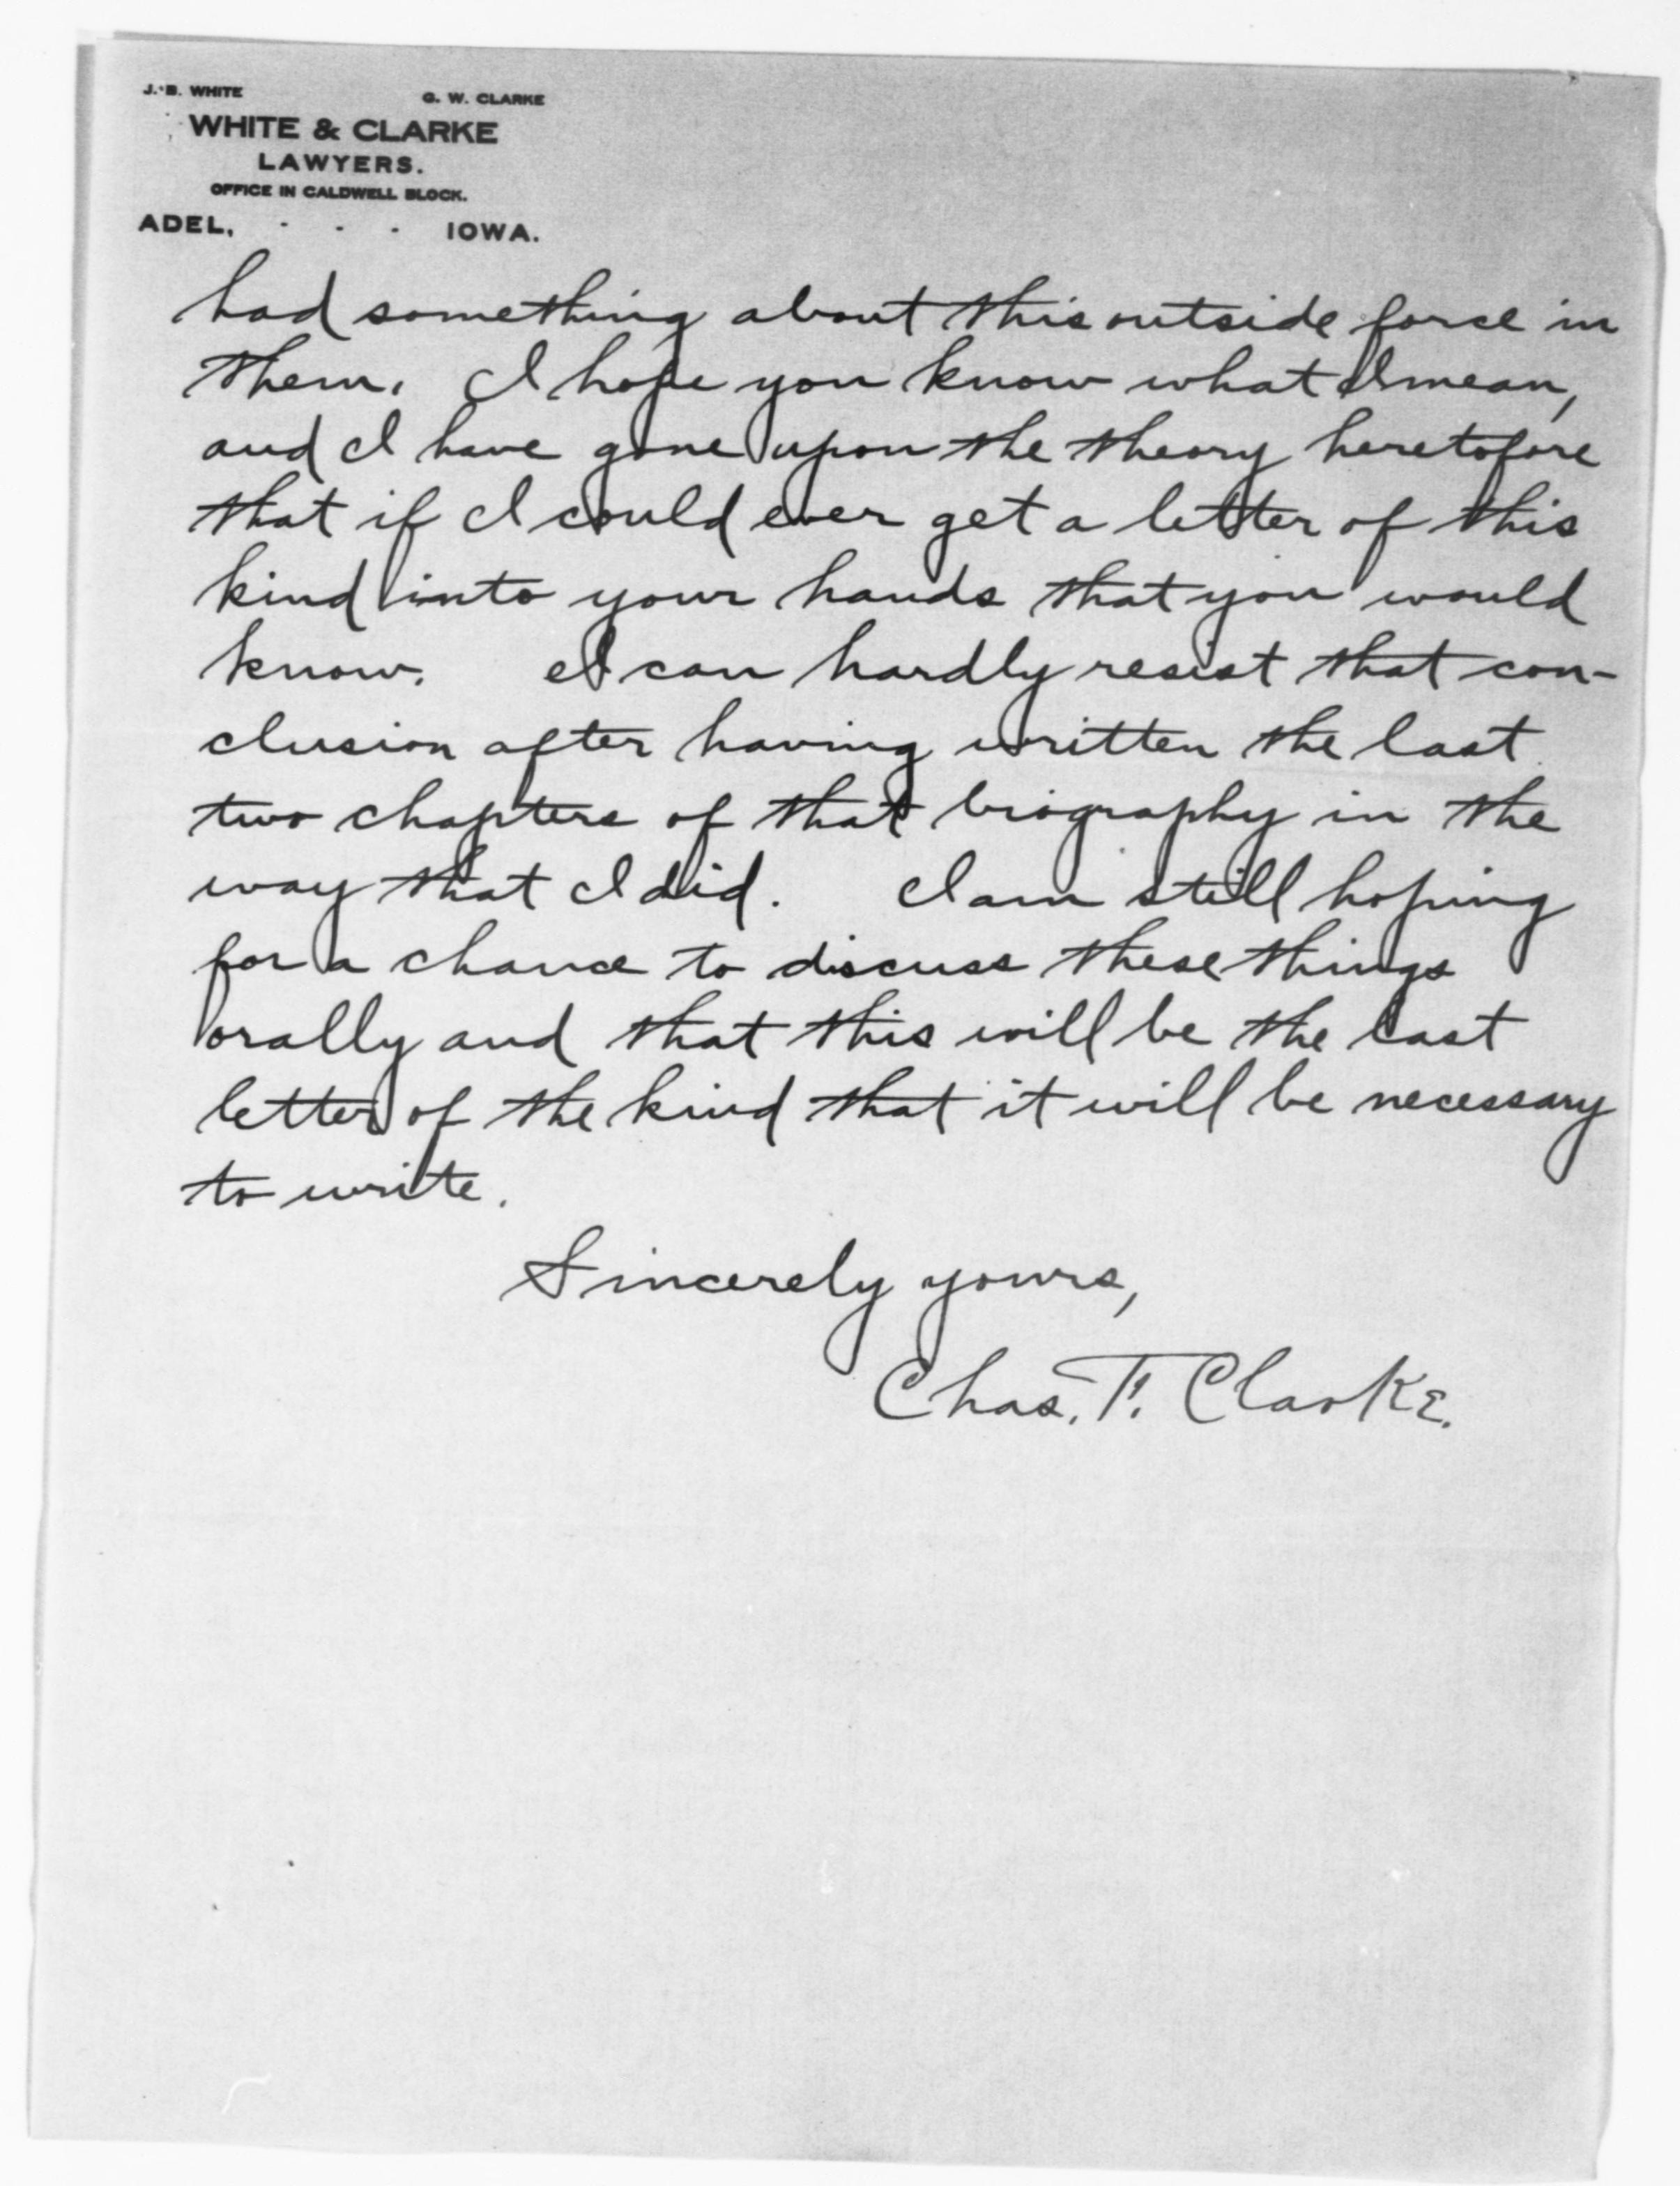 J. B. WHITE G. W. CLARKE
WHITE & CLARKE
LAWYERS.
OFFICE IN CALDWELL BLOCK.
ADEL, - - - IOWA.
had something about this outside force in
them. I hope you know what I mean,
and I have gone upon the theory heretofore
that if I could ever get a letter of this
kind into your hands that you would
know. I can hardly resist that con-
clusion after having written the last
two chapters of that biography in the
way that I did. I am still hoping
for a chance to discuss these things
orally and that this will be the last
letter of the kind that it will be necessary
to write.
Sincerely yours,
Chas. F. Clarke.